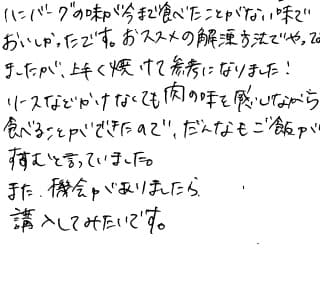 ハンバーグの味が今まで食べたことがない味で
おいしかったです。おススメの解凍方法でやってみ
ましたが、上手く焼けて参考になりました!
ソースなどかけなくても肉の味を感じながら
食べることができたので、だんなもご飯が
すすむと言っていました。
また、機会がありましたら、
購入してみたいです。